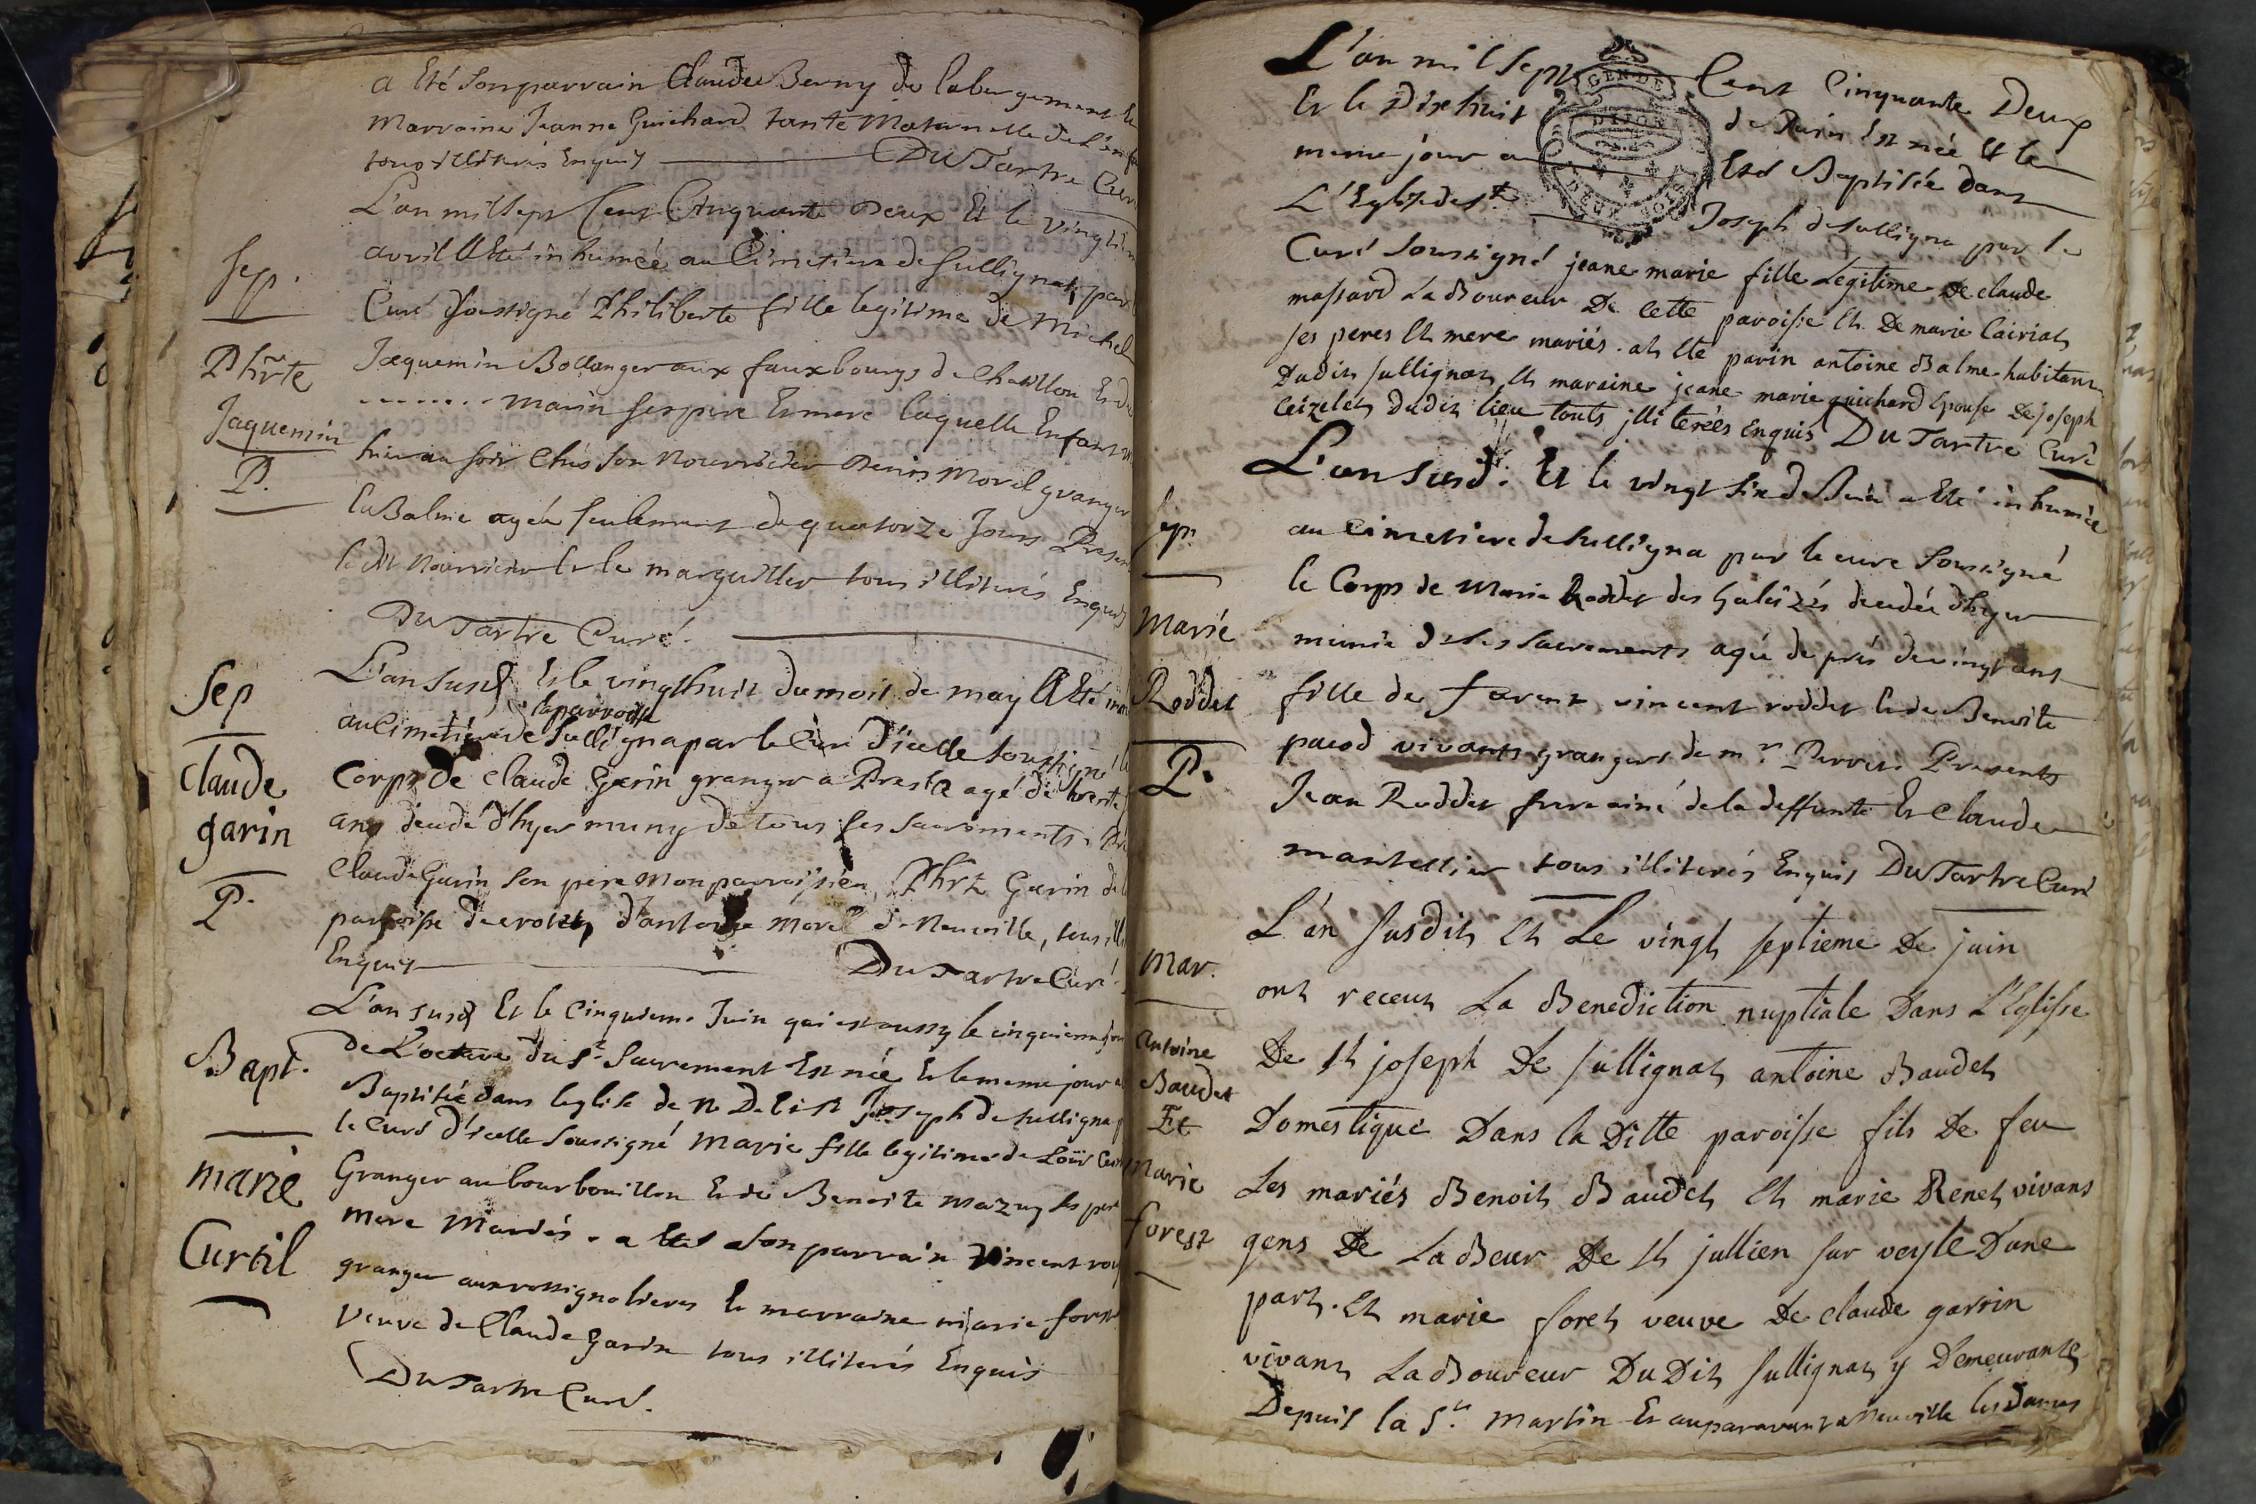 a Eté son parrain Claude Berny de labergement Et
Marraine Jeanne Guichard tante Maternelle de L'enf
tous illiterés Enquis DuTartre Curé
L'an mil sept Cent Cinquante Deux Et le vingt
avril a Eté inhumée au Cimetiere de sullignat par
Curé soussigné Philiberte fille legitime de Michel
Jaquemin Bollanger aux fauxbourgs de Chatillon Et de
........ Marin ses pere Et mere laquelle Enfant
hier au soir Chés son Nourricier Denis Morel granger
En Balme agée seulement de quatorze Jours Presen
le dit Nourricier Et le marguiller tous illiterés Enquis
DuTartre Curé.
Sep.
Phrte
Jaquemin
P.
L'an susd Et le vingthuit du mois de may a Eté
la parroisse
au Cimetiere de Sulligna par le Curé d'icelle soussigné le
Corps de Claude Garin granger a Presle agé de trente
ans decedé d'hyer muny de tous ses sacrements.
Claude Garin son pere Mon parroissien, Phrt Garin de
parroisse de d'antoine Morel de Neuville, tous illi
Enquis DuTartre Curé.
Sep
Claude
garin
P.
L'an susd Et le Cinquieme Juin qui est aussy le cinquieme jour
De L'octave du St Sacrement Est née Et le meme jour a
Baptisée dans leglise de N D Et St Joseph de sulligna
le Curé d'icelle soussigné Marie fille legitime de Loüis
Granger au bourbouillon Et de Benoite Mazuy ses pere
Mere Mariés. a Eté son parrain Vincent
granger aux rossignolieres Et marraine Marie forest
Veuve de Claude Garin tous illiterés Enquis
DuTartre Curé.
Bapt.
Marie
Curtil
L'an mil Sept Cent Cinquante Deux
Et le Dixhuit de Juin Est née Et le
meme jour a Esté Baptisée dans
L'Eglise de St Joseph de sulligna par le
GEN. DE
DIJON
DEUX SOLS
Curé soussigné jeane marie fille Legitime De claude
massard LaBoureur De cette paroisse Et De marie Cairiat
ses peres Et mere mariés. at Eté parin antoine Balme habitant
Dudit sullignat Et maraine jeane marie guichard Epouse De joseph
Ceizelet dudit lieu touts illiterées Enquis DuTartre Curé
L'an Susd. Et le vingt six de Juin a Eté inhumée
au Cimetiere de Sulligna par le curé soussigné
le Corps de Marie Roddet des decedée d'hyer
munie de ses sacrements agée de prés de vingt ans
fille de vincent roddet Et de Benoite
pacod vivants grangers de mr. Perrier Presents
Jean Roddet frere ainé de la deffunte Et Claude
mantellier tous illiterés Enquis DuTartre Curé
Sep.
Marie
Roddet
P.
L'an susdit Et Le vingt septieme De juin
ont receut La Benediction nuptiale Dans L'Eglisse
De St joseph De sullignat antoine Baudet
Domestique Dans la Ditte paroisse fils De feu
Les mariés Benoit Baudet Et marie Renet vivans
gens De LaBeur De St jullien sur veysle D'une
part. Et marie foret veuve De claude garrin
vivant LaBoureur DuDit sullignat y Demeurante
Depuis la St. Martin Et auparavant a Neuville les Dames
Mar.
Antoine
Baudet
Et
Marie
forest